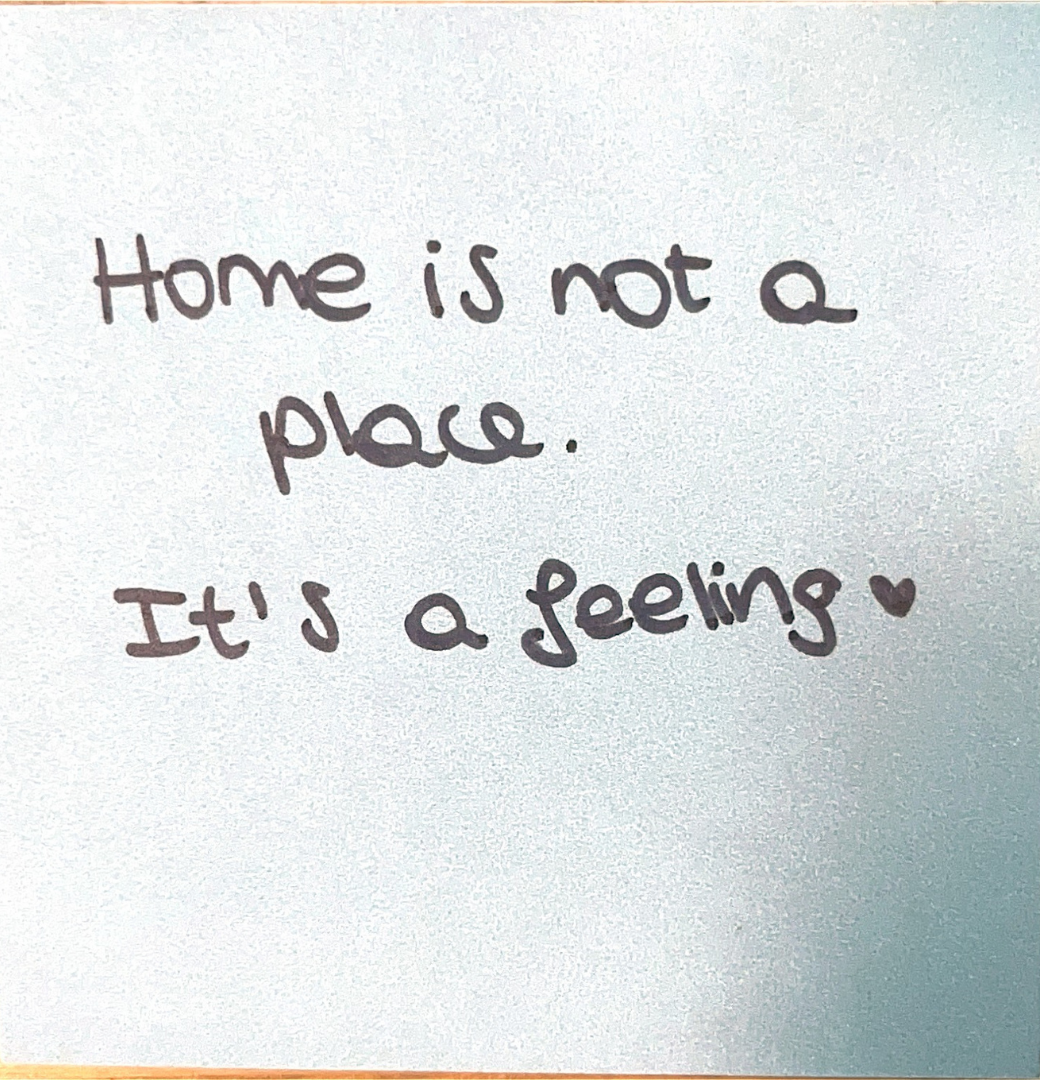 Home is not a
place.
It's a feeling ♥